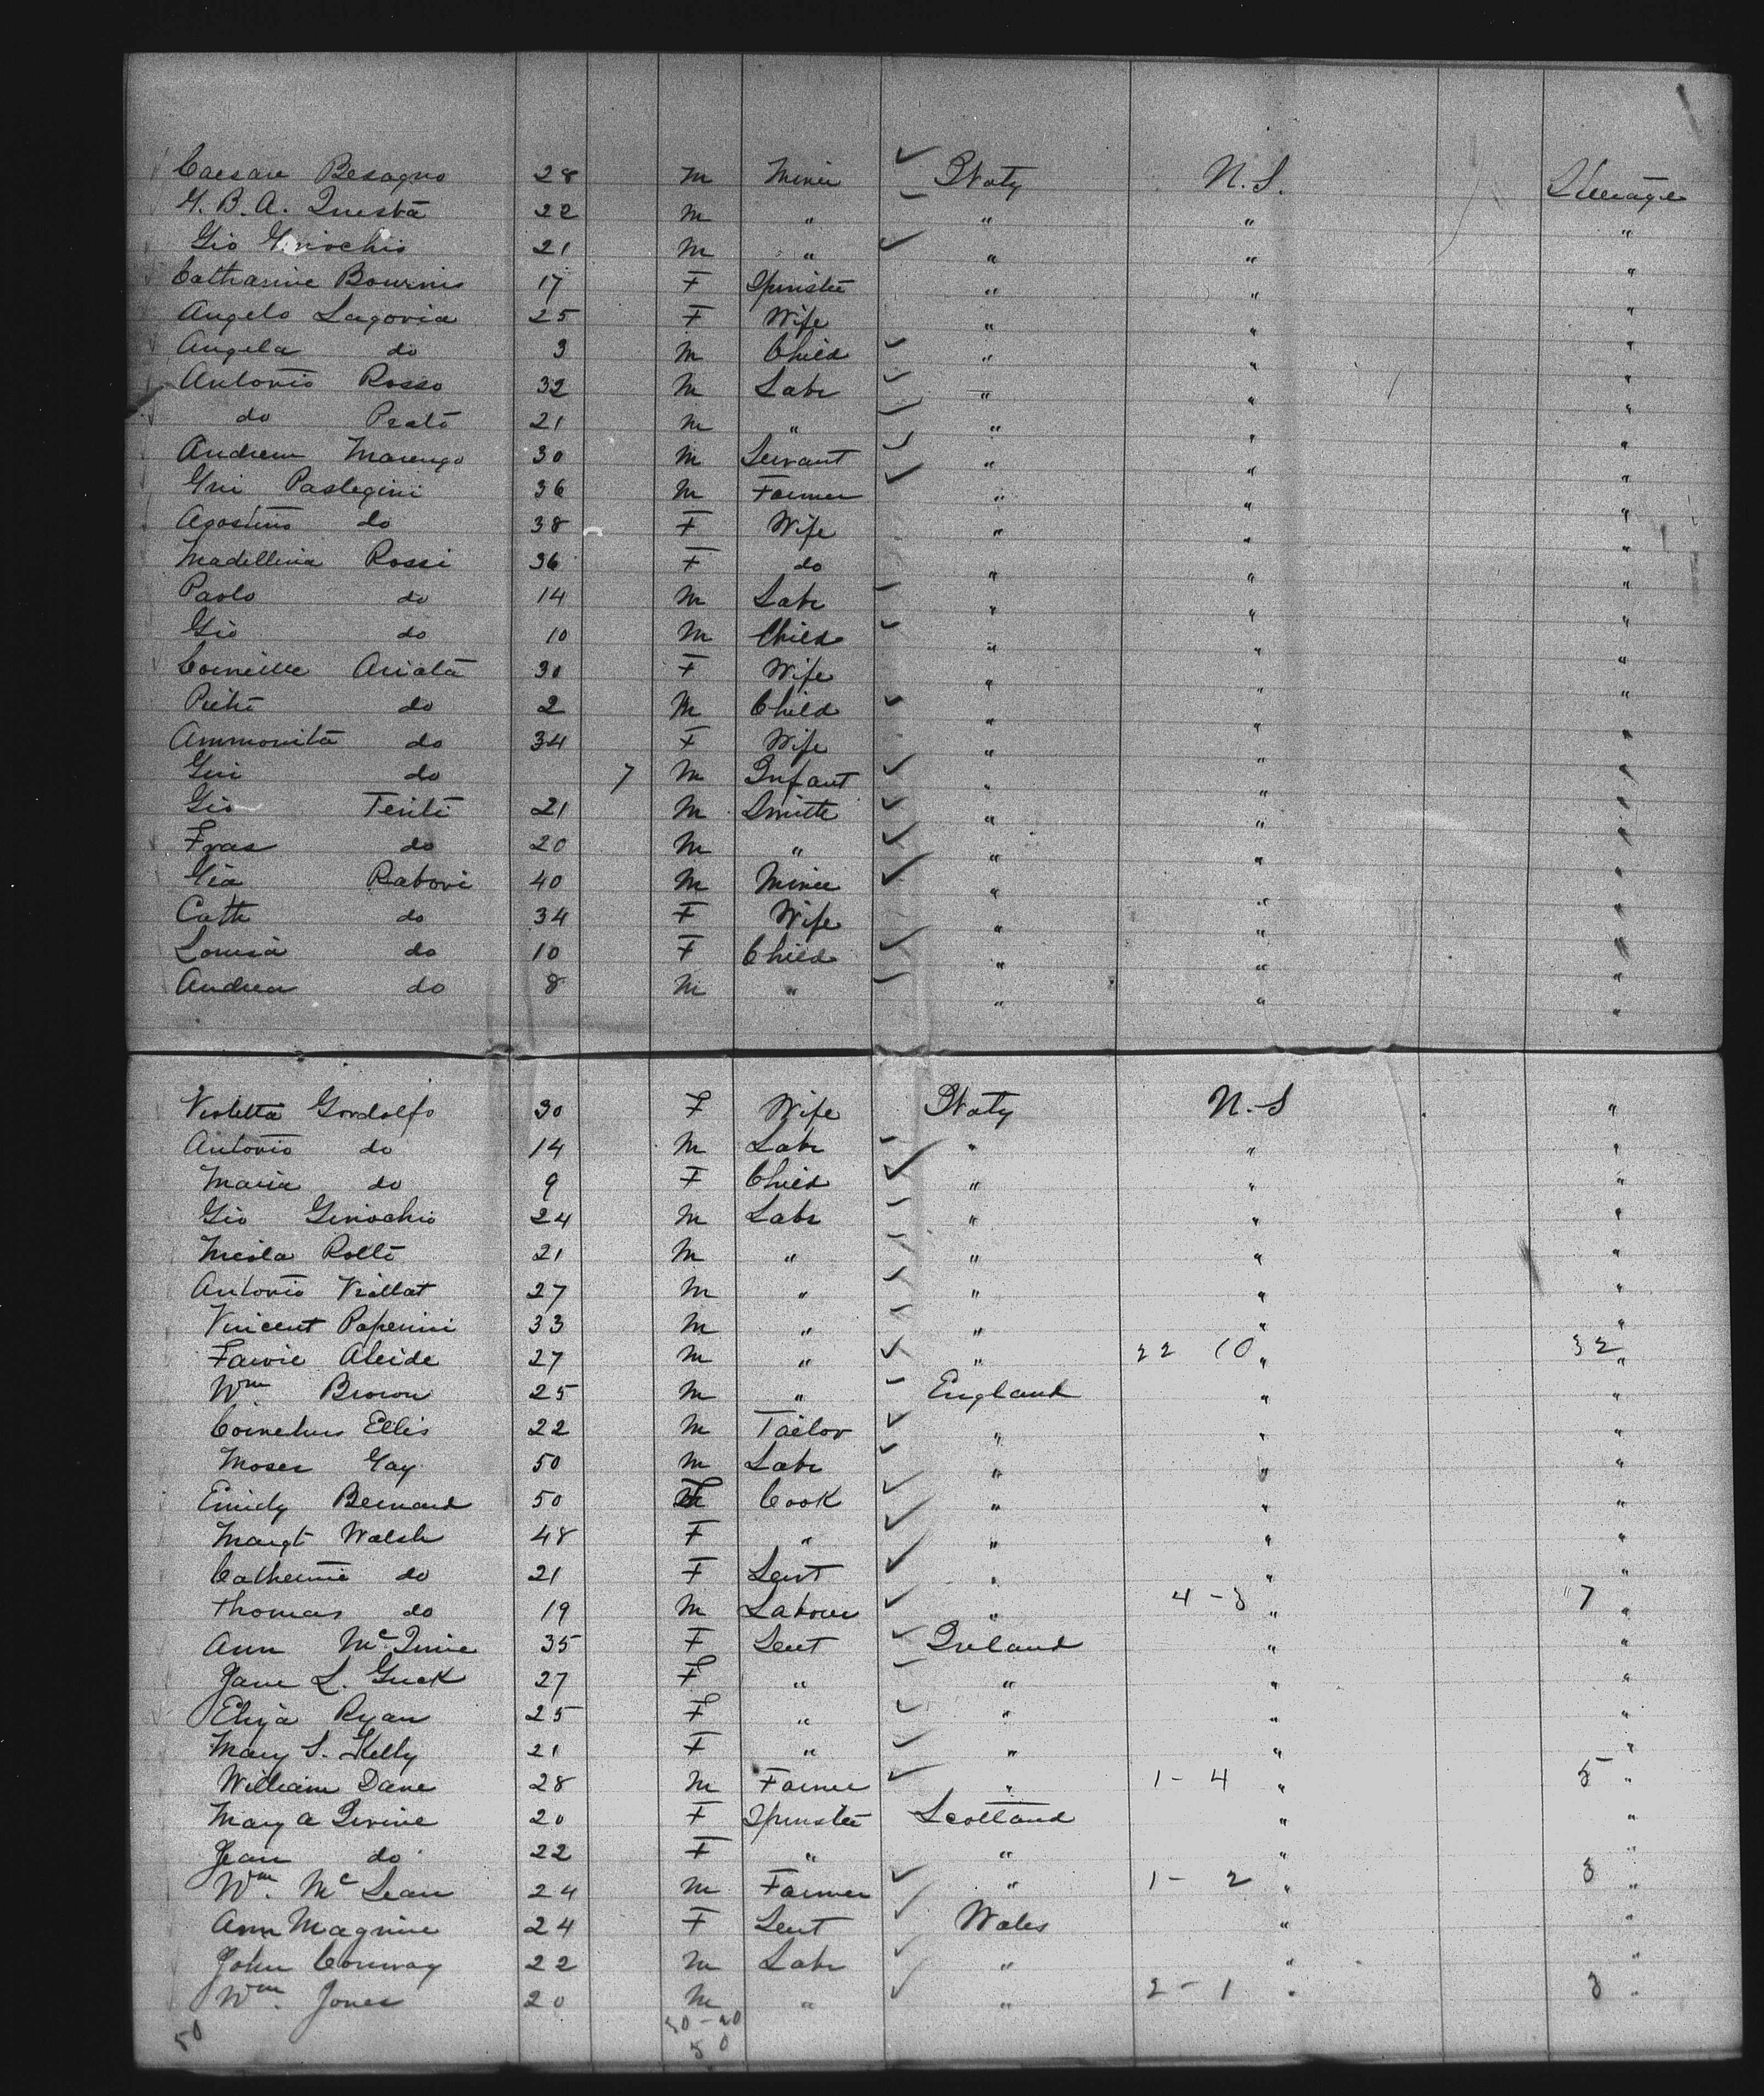 Caesare Besagno 28 M Miner ✓ Italy N.S. Steerage
G. B. A. Questa 22 M " " " "
Gio Ginochio 21 M " ✓ " " "
Catharine Bournis 17 F Spinster " " "
Angelo Lagovia 25 F Wife " " "
Angela do 3 M Child ✓ " " "
Antonio Rosso 32 M Labr ✓ " " "
do Prato 21 M " ✓ " " "
Andrew Marengo 30 M Servant ✓ " " "
Gui Paslegini 36 M Farmer ✓ " " "
Agostino do 38 F Wife " " "
Madellina Rossi 36 F do " " "
Paolo do 14 M Labr ✓ " " "
Gio do 10 M Child ✓ " " "
Corneille Ariata 30 F Wife " " "
Pietro do 2 M Child ✓ " " "
Ammonita do 34 F Wife " " "
Gui do 7 M Infant ✓ " " "
Gio Teriti 21 M Smith ✓ " " "
Fras do 20 M " ✓ " " "
Gia Rabovi 40 M Miner ✓ " " "
Cath do 34 F Wife " " "
Louisa do 10 F Child ✓ " " "
Andrea do 8 M " ✓ " " "
Violetta Gondolfo 30 F Wife Italy N.S "
Antonio do 14 M Labr ✓ " " "
Maria do 9 F Child ✓ " " "
Gio Ginochio 24 M Labr ✓ " " "
Nicola Rolle 21 M " ✓ " " "
Antonio Viallat 27 M " ✓ " " "
Vincent Papenini 33 M " ✓ " " "
Favoie Aleide 27 M " ✓ " 22 10 " 32 "
Wm Brown 25 M " ✓ England " "
Cornelius Ellis 22 M Tailor ✓ " " "
Moses Gay 50 M Labr ✓ " " "
Emidy Bernard 50 F Cook ✓ " " "
Margt Walsh 48 F " ✓ " " "
Catherine do 21 F Servt ✓ " " "
Thomas do 19 M Labour ✓ " 4 - 3 " 7 "
Ann McQuire 35 F Sevt ✓ Ireland " "
Jane L. Guck 27 F " ✓ " " "
Eliza Ryan 25 F " ✓ " " "
Mary S. Kelly 21 F " ✓ " " "
William Dane 28 M Farmer ✓ " 1 - 4 " 5 "
Mary A Irvine 20 F Spinster Scotland " "
Jean do 22 F " " " "
Wm. McLean 24 M Farmer ✓ " 1 - 2 " 3 "
Ann Magnine 24 F Sevt ✓ Wales " "
John Conway 22 M Labr ✓ " " "
Wm. Jones 20 M " ✓ " 2 - 1 " 3 "
50 30 - 20
50